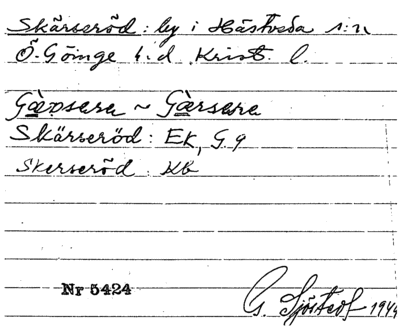 Skärseröd: by i Hästveda s:n
Ö. Göinge h.d. Krist. l.
Skärseröd: Ek, G.9
Skerseröd: Kb
Nr 5424
G. Sjöstedt 1944